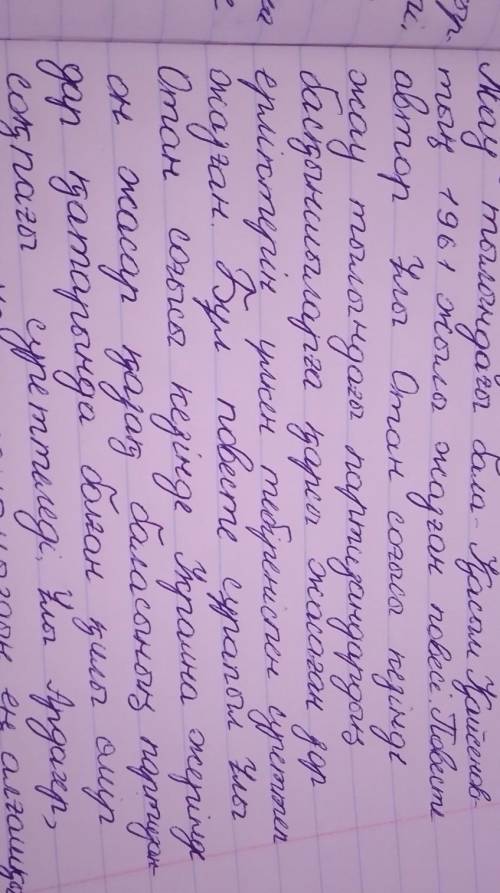 Жау тылындағы бала - Қасым Қайсенов-
тың 1961 жылы жазған повесі. Повесте
автор Ұлы Отан соғысы кезінде
жау тылындағы партизандардың
басқыншыларға қарсы жасаған зор
ерліктерін үлкен тебреніспен суреттеп
жазған. Бұл повесте сұрапыл Ұлы
Отан соғысы кезінде Украина жерінде
он жасар қазақ баласының партизан-
дар қатарында болған қилы өмір
соқпағы суреттеледі. Ұлы Ардагер,
ең алғашқы